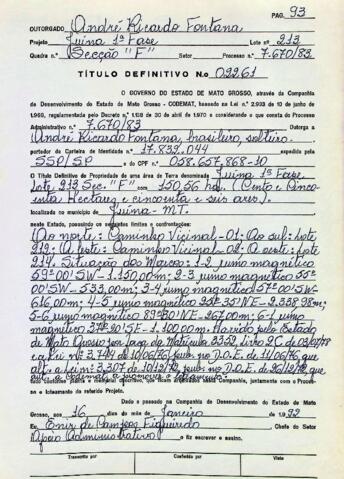 PAG. 93
OUTORGADO André Ricardo Fontana
Projeto Juina 1ª Fase Lote nº 213
Quadra nº Secção "F" Setor Processo nº 7.670/83
TÍTULO DEFINITIVO N.o 02261
O GOVERNO DO ESTADO DE MATO GROSSO, através da Companhia
de Desenvolvimento do Estado de Mato Grosso - CODEMAT, baseado na Lei n.º 2.903 de 10 de junho
de 1.969, regulamentada pelo Decreto n.º 1.118 de 30 de abril de 1970 e considerando o que consta do Processo
Administrativo n.º 7.670/83 Outorga a
André Ricardo Fontana, brasileiro, solteiro.
portador da Carteira de Identidade n.º 17.832.044 expedida pela
SSP/SP e do CPF nº 058.657.868-10
O Título Definitivo de Propriedade de uma área de Terra denominada Juina 1ª Fase
Lote 213 Sec. "F" com 150,56 ha. (Cento e Cinco-
enta Hectares e cinoenta e seis ares).
localizada no município de Juina - MT.
neste Estado, possuindo os seguintes limites e confrontações:
Ao norte: Caminho Vicinal-01: Ao sul: Lote
212: A leste: Caminho Vicinal-02: A oeste: Lote
214. Situação dos Marcos: 1-2 rumo magnético
59º00'SW-1.150,00m; 2-3 rumo magnético 55º
00'SW-533,00m; 3-4 rumo magnético 57º00'SW
616,00m; 4-5 rumo magnético 35'NE-2.338,98m;
5-6 rumo magnético 89º30'NE-267,00m; 6-1 rumo
magnético 20'SE-1.100,00m. Havido pelo Estado
de Mato Grosso por força da Matrícula 3352 Livro 2C de
a Lei nº 3.744 de 10/06/76, publ. no D.O.E. de 11/06/76, que
alt. a Lei nº 3.307 de 10/12/72, publ. no D.O.E. de 26/12/72, que
aut. a Codemat a promover o
tudo conforme planta e memorial descritivo, que ficam arquivados nesta Companhia, juntamente com o Proces-
so e loteamento do referido Projeto.
Dado e passado na Companhia de Desenvolvimento do Estado de Mato
Grosso, aos 16 dias do mês de Janeiro de 1.992
Eu Enir de Campos Figueiredo Chefe do Setor
Apoio Administrativo o fiz escrever e assino.
Transcrito por Conferido por Visto